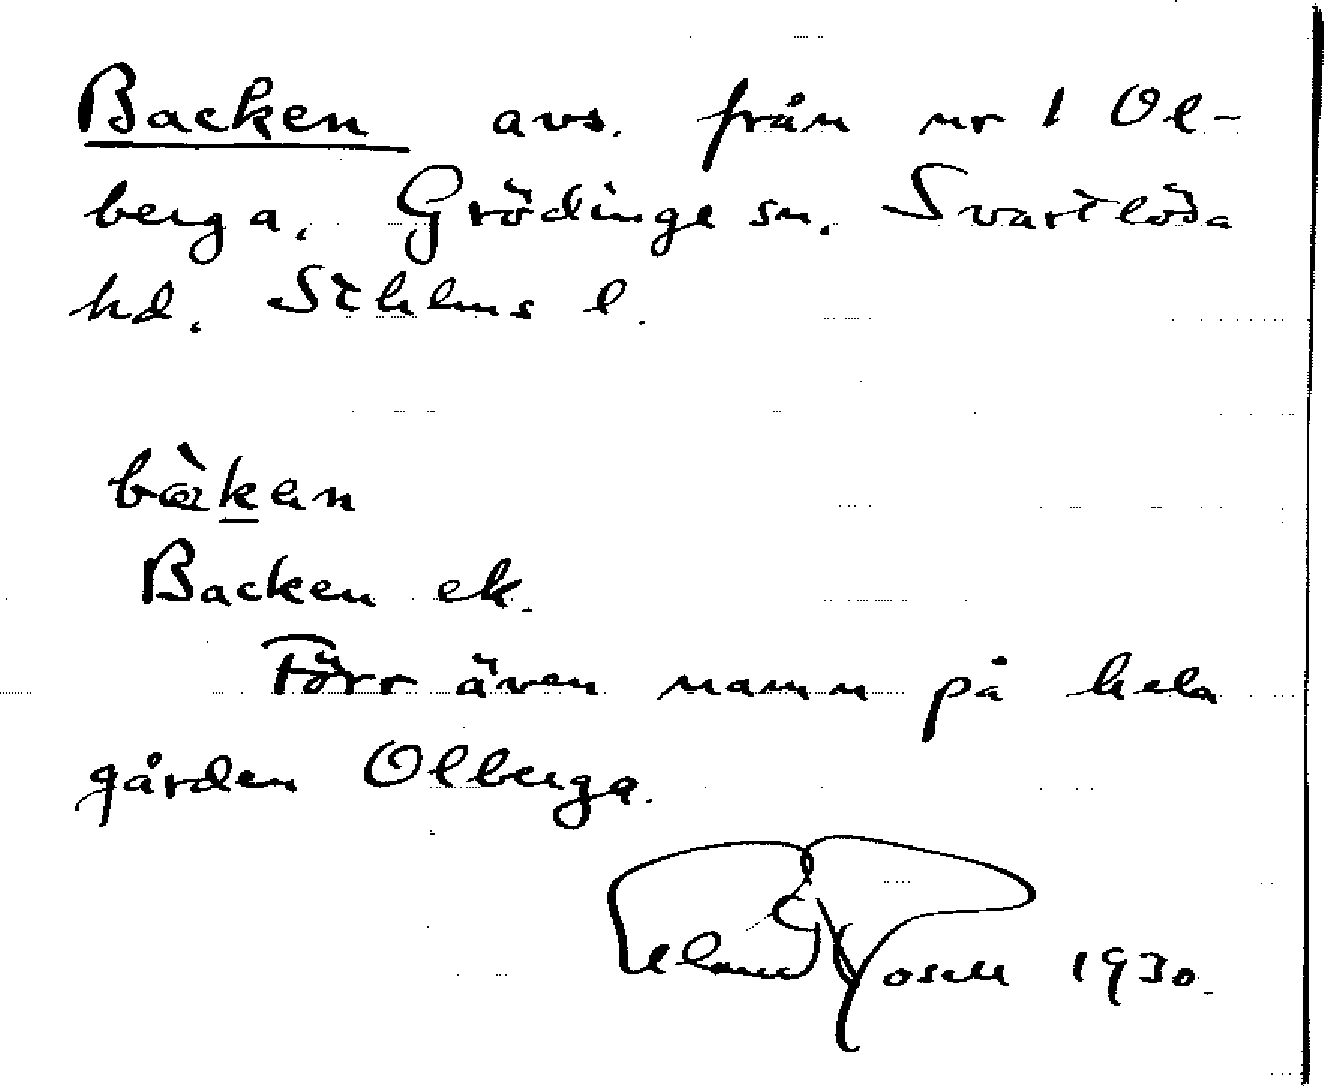 Backen avs. från nr 1 Ol-
berga. Grödinge sn. Svartlösa
hd. Sthlms l.
bàkan
Backen ek.
Förr även namn på hela
gården Olberga.
1930.